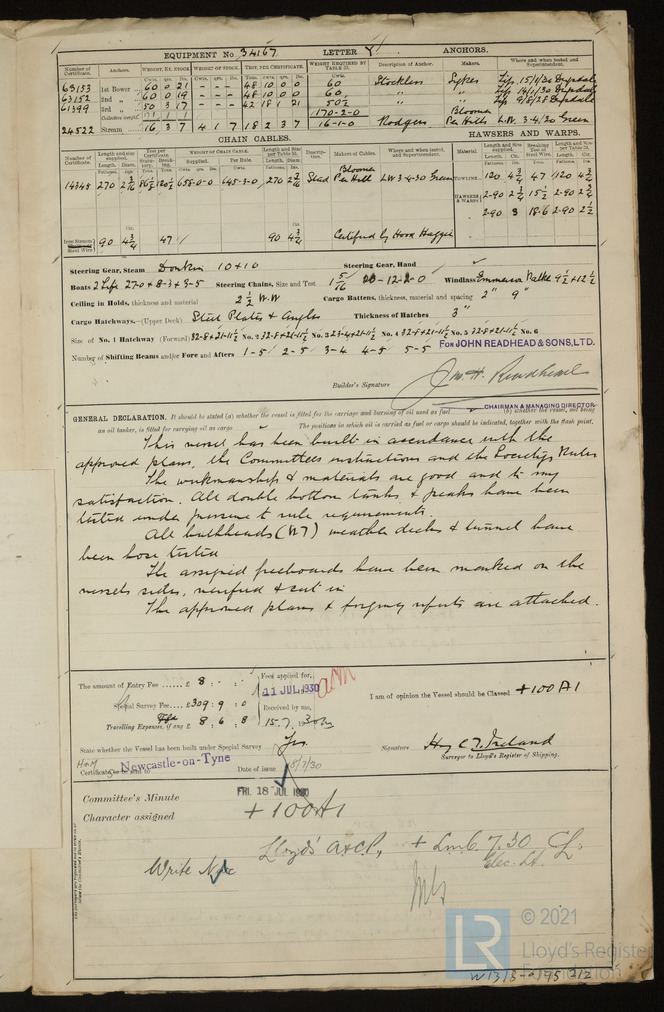 EQUIPMENT No 34167 LETTER Y ANCHORS.
Number of Certificate. Anchors. WEIGHT, EX. STOCK WEIGHT OF STOCK TEST, PER CERTIFICATE. WEIGHT REQUIRED BY TABLE 53. Description of Anchor. Makers. Where and when tested and Superintendent.
Cwts. qrs. lbs. Cwts. qrs. lbs. Tons. cwts. qrs. lbs. Cwts.
63153 1st Bower 60 0 21 - - - 48 10 0 0 60 Stockless Sykes 15/1/30
63152 2nd " 60 0 19 - - - 48 10 0 0 60 " " 14/1/30
61399 3rd " 50 3 17 - - - 42 18 1 21 50½ " 9/8/28
Collective weight 171 1 1 170-2-0 Bloomer
24522 Stream 16 3 7 4 1 7 18 2 3 7 16-1-0 Rodgers L.W. 3-4/30 Green
CHAIN CABLES. HAWSERS AND WARPS.
Number of Certificate. Length and size supplied. Test per Certificate. WEIGHT OF CHAIN CABLE. Length and Size per Table 53. Description. Makers of Cables. Where and when tested, and Superintendent. Material Length and Size Supplied. Breaking Test of Steel Wire. Length and Size per Table 53.
14348 270 2 3/16 658-0-0 645-3-0 270 2 3/16 Stud Bloomer L.W 3-4-30 Green TOWLINE 120 4¾ 47 120 4¾
HAWSERS & WARPS 2-90 2¾ 15½ 2-90 2¾
2-90 3 18.6 2-90 2½
Iron Stream or Steel Wire 90 4¾ 47 90 4¾ Certified by Hood Haggie
Steering Gear, Steam Donkin 10+10 Steering Gear, Hand
Boats 2 Life 27-0 x 8-3 x 3-5 Steering Chains, Size and Test 1 5/16 -12-2-0 Windlass Emmerson Walker 9½ + 12½
Ceiling in Holds, thickness and material 2½ W.W Cargo Battens, thickness, material and spacing 2" 9"
Cargo Hatchways.—(Upper Deck) Steel Plates & Angles Thickness of Hatches 3"
Size of No. 1 Hatchway (Forward) 32-8 x 21-11½ No. 2 32-8 x 21-11½ No. 3 23-4 x 21-11½ No. 4 32-8 x 21-11½ No. 5 32-8 x 21-11½ No. 6
Number of Shifting Beams and/or Fore and Afters 1-5 2-5 3-4 4-5 5-5 FOR JOHN READHEAD & SONS, LTD.
Builder's Signature Jas. H. Readhead
CHAIRMAN & MANAGING DIRECTOR
GENERAL DECLARATION. It should be stated (a) whether the vessel is fitted for the carriage and burning of oil used as fuel (b) whether the vessel, not being
an oil tanker, is fitted for carrying oil as cargo The positions in which oil is carried as fuel or cargo should be indicated, together with the flash point.
This vessel has been built in accordance with the
approved plans, the Committees instructions and the Society's Rules
The workmanship & materials are good and to my
satisfaction. All double bottom tanks & peaks have been
tested under pressure to rule requirements.
All bulkheads (WT) weather decks & tunnel have
been hose tested
The assigned freeboards have been marked on the
vessels sides, verified & cut in
The approved plans & forging reports are attached.
The amount of Entry Fee ...... £ 8 : - : - Fees applied for,
11 JUL 1930
Special Survey Fee.... £ 309 : 9 : 0 Received by me,
Travelling Expenses, if any £ 8 : 6 : 8 15.7.1930
I am of opinion the Vessel should be Classed +100 A1
State whether the Vessel has been built under Special Survey Yes.
Signature Hy C. T. Ireland
Surveyor to Lloyd's Register of Shipping.
Certificate to be sent to Newcastle-on-Tyne Date of issue 18/7/30
Committee's Minute FRI. 18 JUL 1930
Character assigned +100A1
Lloyd's A&CP, + LMC 7.30 CL.
Elec. Lt.
Write Nwc
LR © 2021
Lloyd's Register
Foundation
W1313-0195 2/2